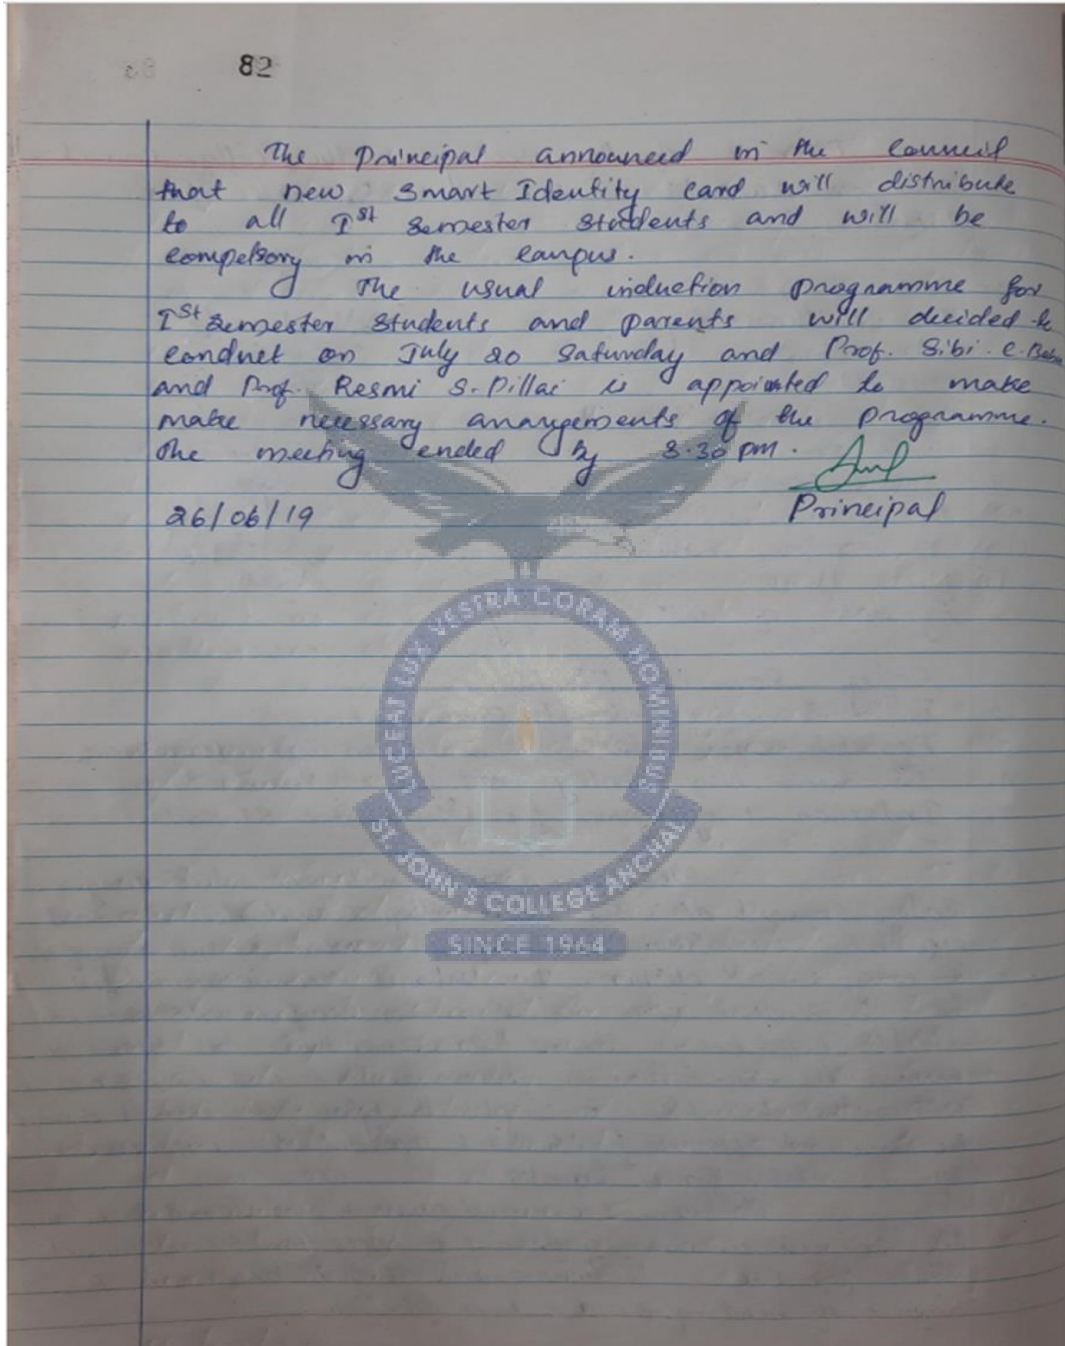 82
The Principal announced in the Council
that new Smart Identity card will distribute
to all Ist Semester Students and will be
compelsory in the campus.
The usual induction programme for
Ist Semester Students and parents will decided to
conduct on July 20 Saturday and Prof. Sibi. C. Babu
and Prof. Resmi S. Pillai is appointed to make
make necessary arrangements of the programme.
The meeting ended by 3.30 pm.
Principal
26/06/19
LUCEAT LUX VESTRA CORAM HOMINIBUS
ST. JOHN'S COLLEGE ANCHAL
SINCE 1964